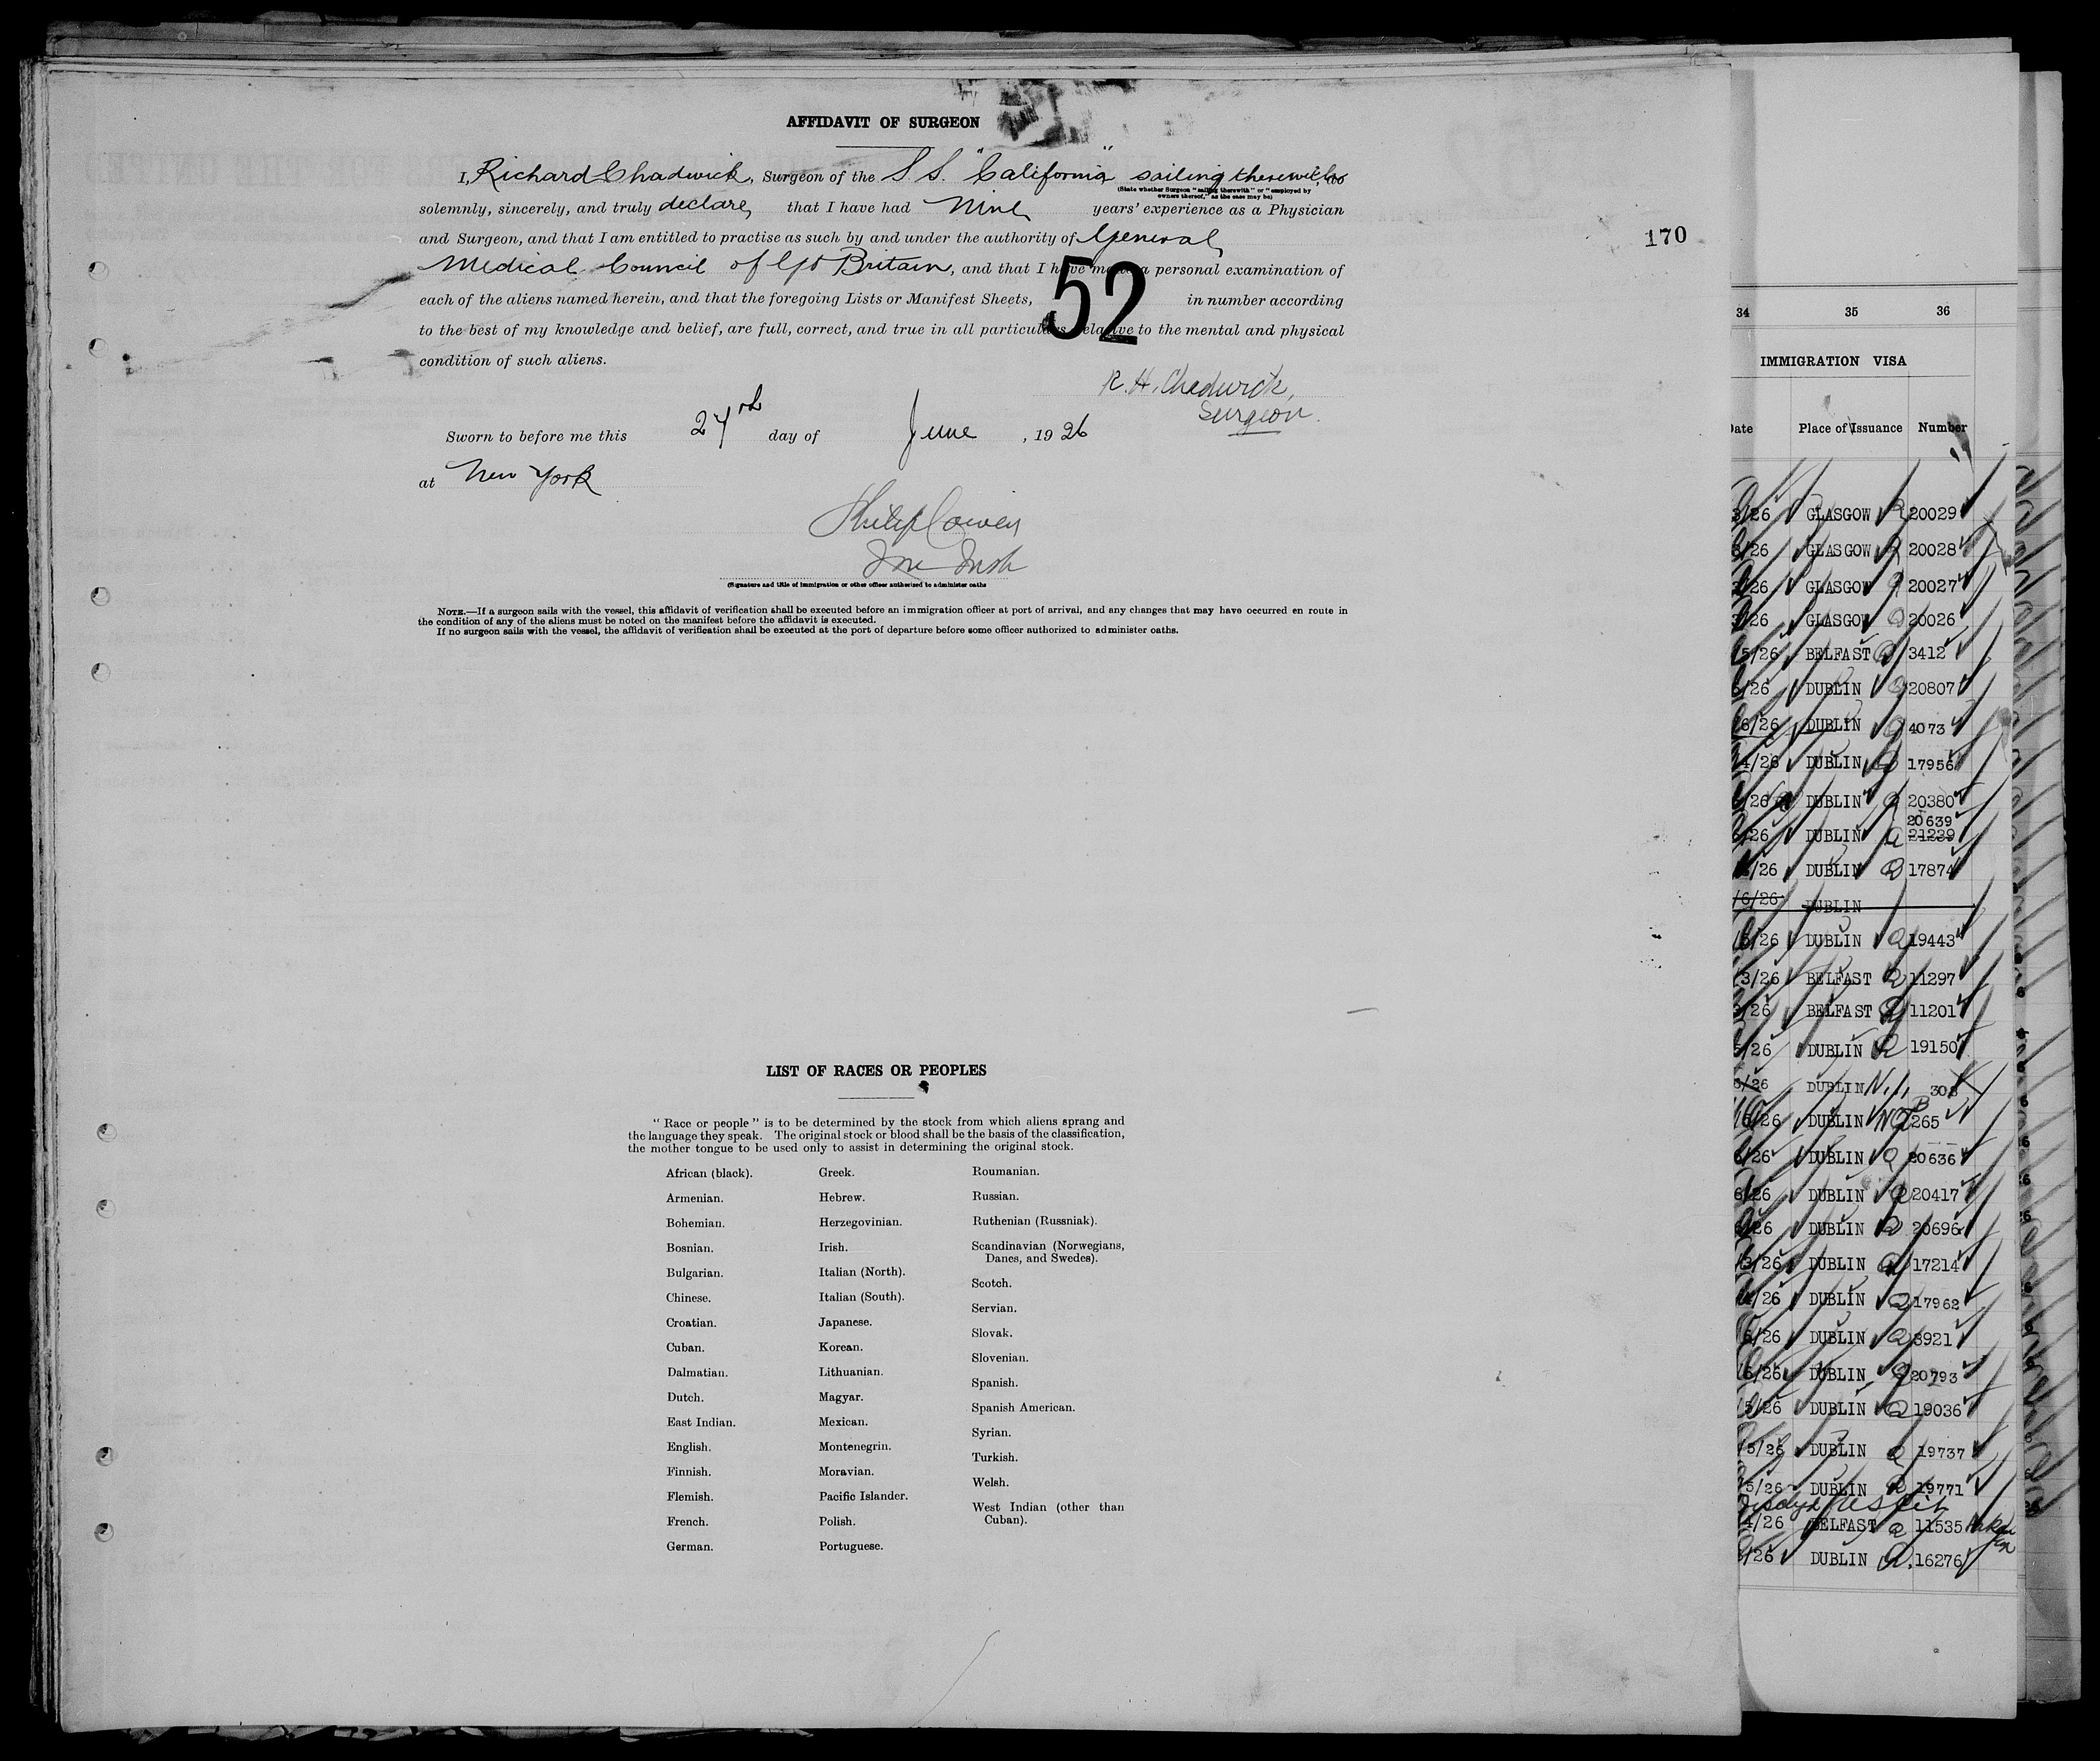 AFFIDAVIT OF SURGEON
I, Richard Chadwick, Surgeon of the S.S. "California" sailing therewith, do
(State whether Surgeon "sailing therewith" or "employed by
owners thereof," as the case may be)
solemnly, sincerely, and truly declare, that I have had Nine years' experience as a Physician
and Surgeon, and that I am entitled to practise as such by and under the authority of General
Medical Council of Gt Britain, and that I have made a personal examination of
each of the aliens named herein, and that the foregoing Lists or Manifest Sheets, 52 in number according
to the best of my knowledge and belief, are full, correct, and true in all particulars relative to the mental and physical
condition of such aliens.
R. H. Chadwick,
Surgeon.
Sworn to before me this 27th day of June, 1926
at New York
Philip Cowen
(Signature and title of immigration or other officer authorized to administer oaths
NOTE.—If a surgeon sails with the vessel, this affidavit of verification shall be executed before an immigration officer at port of arrival, and any changes that may have occurred en route in
the condition of any of the aliens must be noted on the manifest before the affidavit is executed.
If no surgeon sails with the vessel, the affidavit of verification shall be executed at the port of departure before some officer authorized to administer oaths.
170
LIST OF RACES OR PEOPLES
"Race or people" is to be determined by the stock from which aliens sprang and
the language they speak. The original stock or blood shall be the basis of the classification,
the mother tongue to be used only to assist in determining the original stock.
African (black).
Armenian.
Bohemian.
Bosnian.
Bulgarian.
Chinese.
Croatian.
Cuban.
Dalmatian.
Dutch.
East Indian.
English.
Finnish.
Flemish.
French.
German.
Greek.
Hebrew.
Herzegovinian.
Irish.
Italian (North).
Italian (South).
Japanese.
Korean.
Lithuanian.
Magyar.
Mexican.
Montenegrin.
Moravian.
Pacific Islander.
Polish.
Portuguese.
Roumanian.
Russian.
Ruthenian (Russniak).
Scandinavian (Norwegians,
Danes, and Swedes).
Scotch.
Servian.
Slovak.
Slovenian.
Spanish.
Spanish American.
Syrian.
Turkish.
Welsh.
West Indian (other than
Cuban).
34 35 36
IMMIGRATION VISA
Date Place of Issuance Number
/26 GLASGOW 20029
/26 GLASGOW 20028
/26 GLASGOW 20027
/26 GLASGOW 20026
5/26 BELFAST 3412
/26 DUBLIN 20807
6/26 DUBLIN 4073
4/26 DUBLIN 17956
/26 DUBLIN 20380
20639
/26 DUBLIN 21239
/26 DUBLIN 17874
/6/26 DUBLIN
5/26 DUBLIN 19443
3/26 BELFAST 11297
/26 BELFAST 11201
5/26 DUBLIN 19150
6/26 DUBLIN 308
6/26 DUBLIN 265
/26 DUBLIN 20636
6/26 DUBLIN 20417
/26 DUBLIN 20696
3/26 DUBLIN 17214
/26 DUBLIN 17962
6/26 DUBLIN 3921
6/26 DUBLIN 20793
5/26 DUBLIN 19036
5/26 DUBLIN 19737
5/26 DUBLIN 19771
4/26 BELFAST 11535
/26 DUBLIN 16276